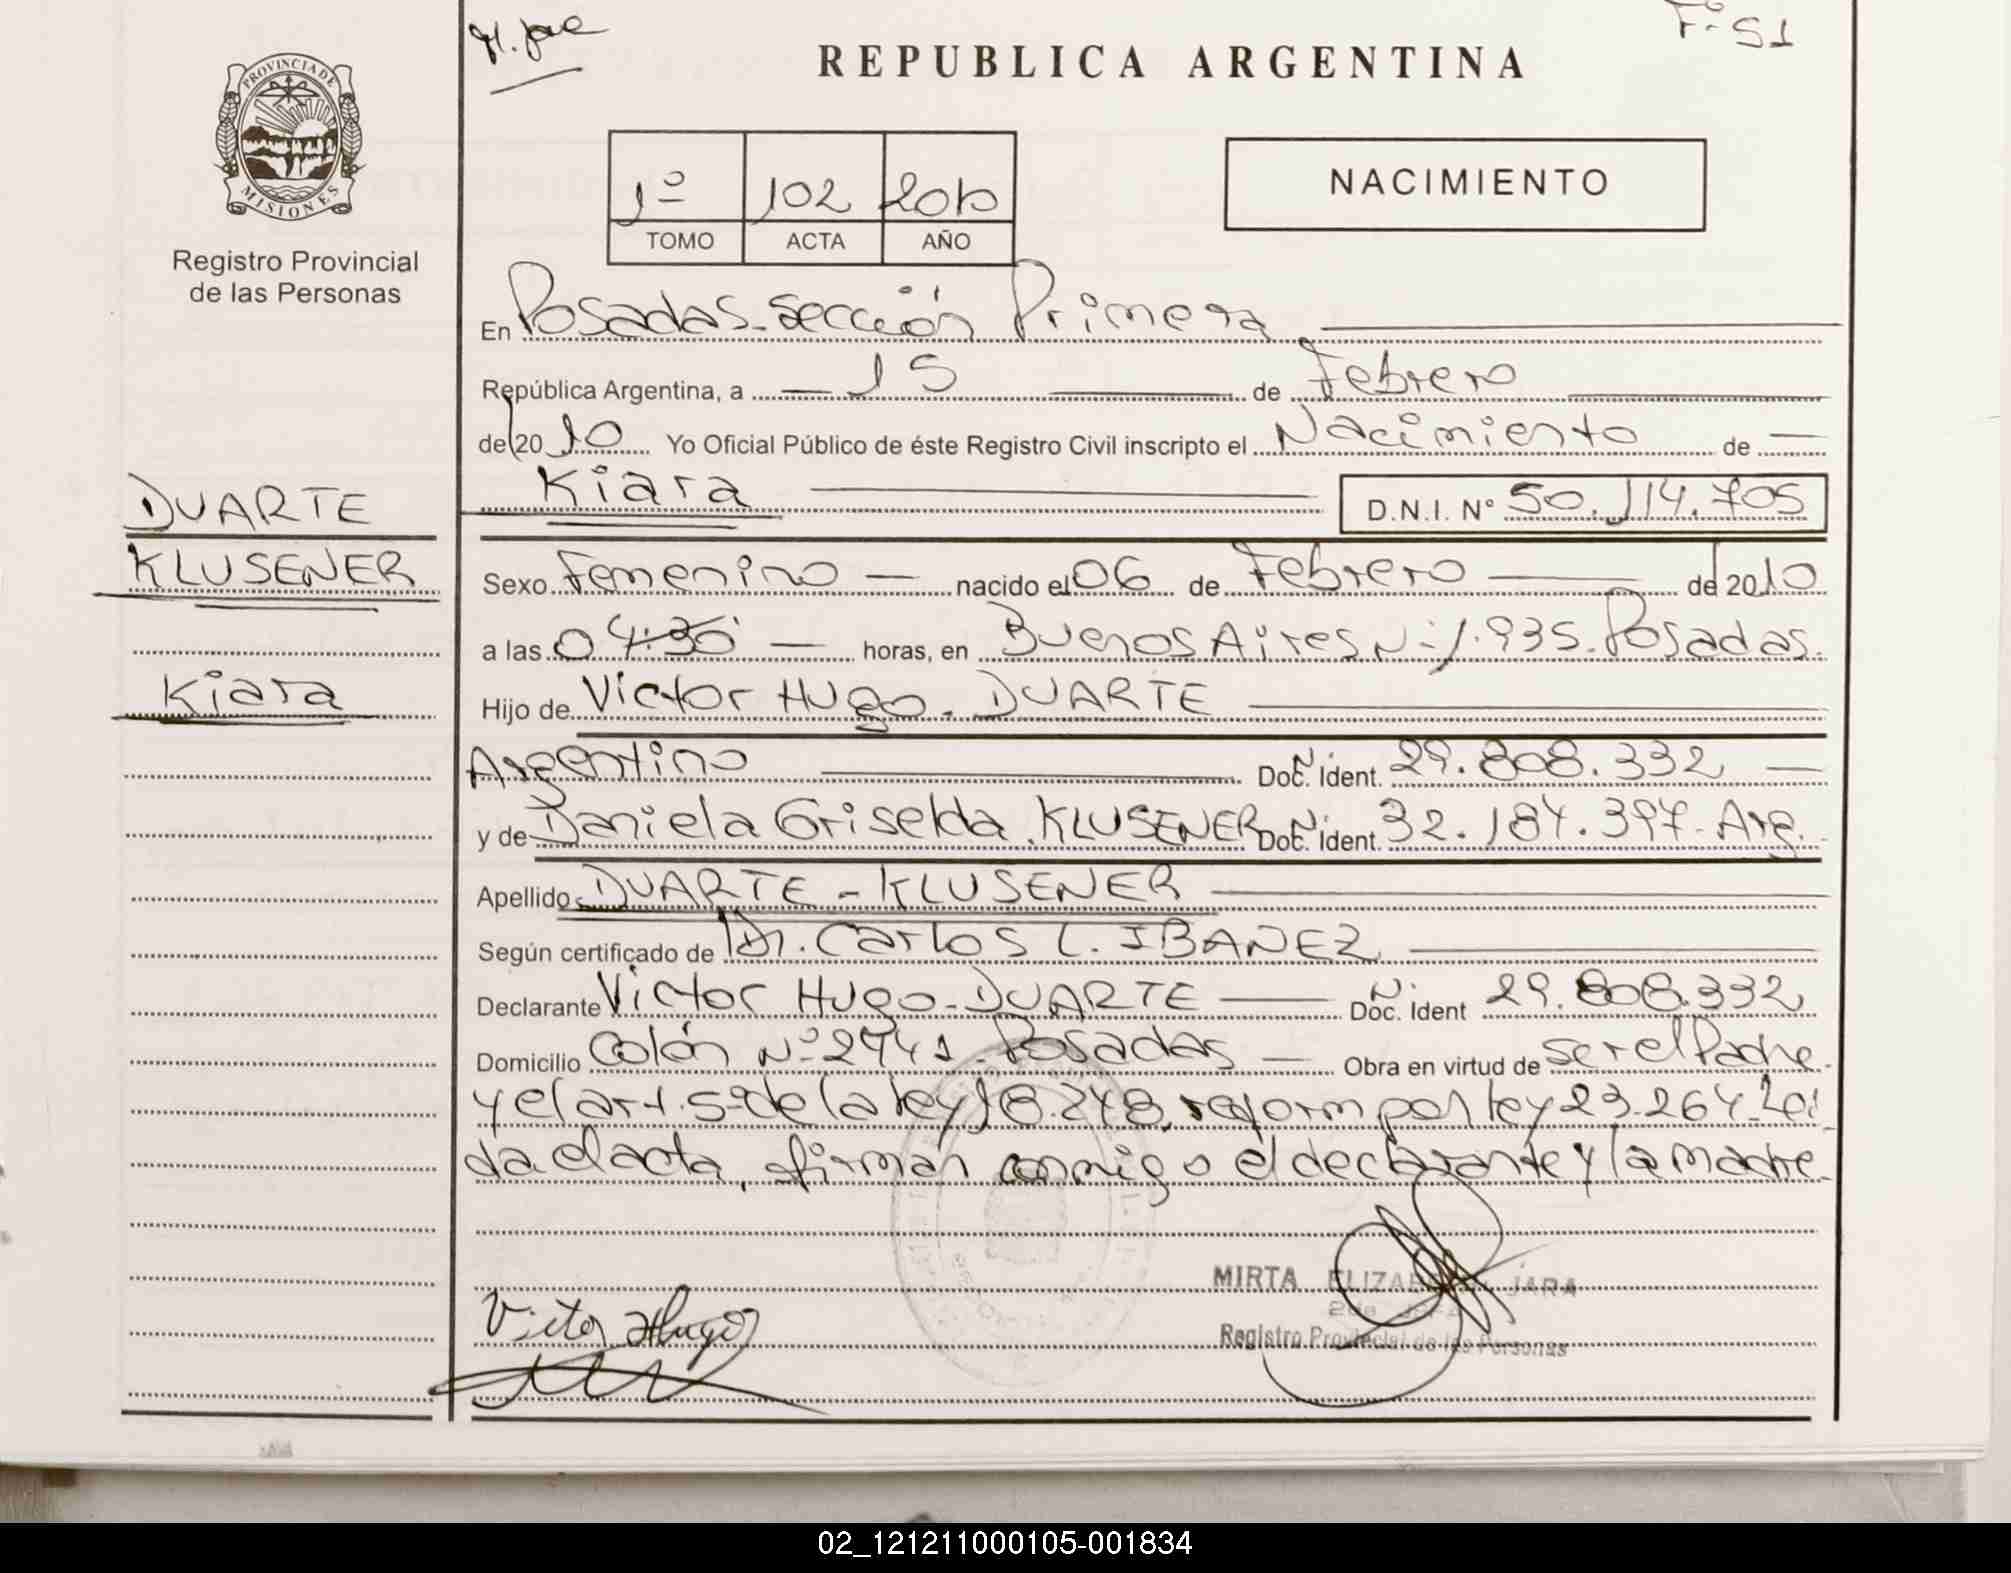 F- 51
REPUBLICA ARGENTINA
PROVINCIA DE
MISIONES
Registro Provincial
de las Personas
1º 102 2010
TOMO ACTA AÑO
NACIMIENTO
En Posadas - Sección Primera
República Argentina, a 15 de Febrero
de 2010 Yo Oficial Público de éste Registro Civil inscripto el Nacimiento de
DUARTE
KLUSENER
Kiara
Kiara D.N.I. Nº 50.114.705
Sexo Femenino nacido el 06 de Febrero de 2010
a las 04:30 horas, en Buenos Aires Nº 1.935. Posadas.
Hijo de Victor Hugo. DUARTE
Argentino Doc. Ident. 29.808.332
y de Daniela Griselda. KLUSENER Doc. Ident. 32.184.397 - Arg.
Apellido DUARTE - KLUSENER
Según certificado de Dr. Carlos L. IBAÑEZ
Declarante Victor Hugo - DUARTE Doc. Ident 29.808.332
Domicilio Colón Nº 2441 - Posadas Obra en virtud de ser el Padre
y el art. 5º de la ley 18.248, reform por ley 23.264. Leí
da el acta, firman conmigo el declarante y la madre.
Victor Hugo
MIRTA ELIZABETH JARA
Registro Provincial de las Personas
02_121211000105-001834